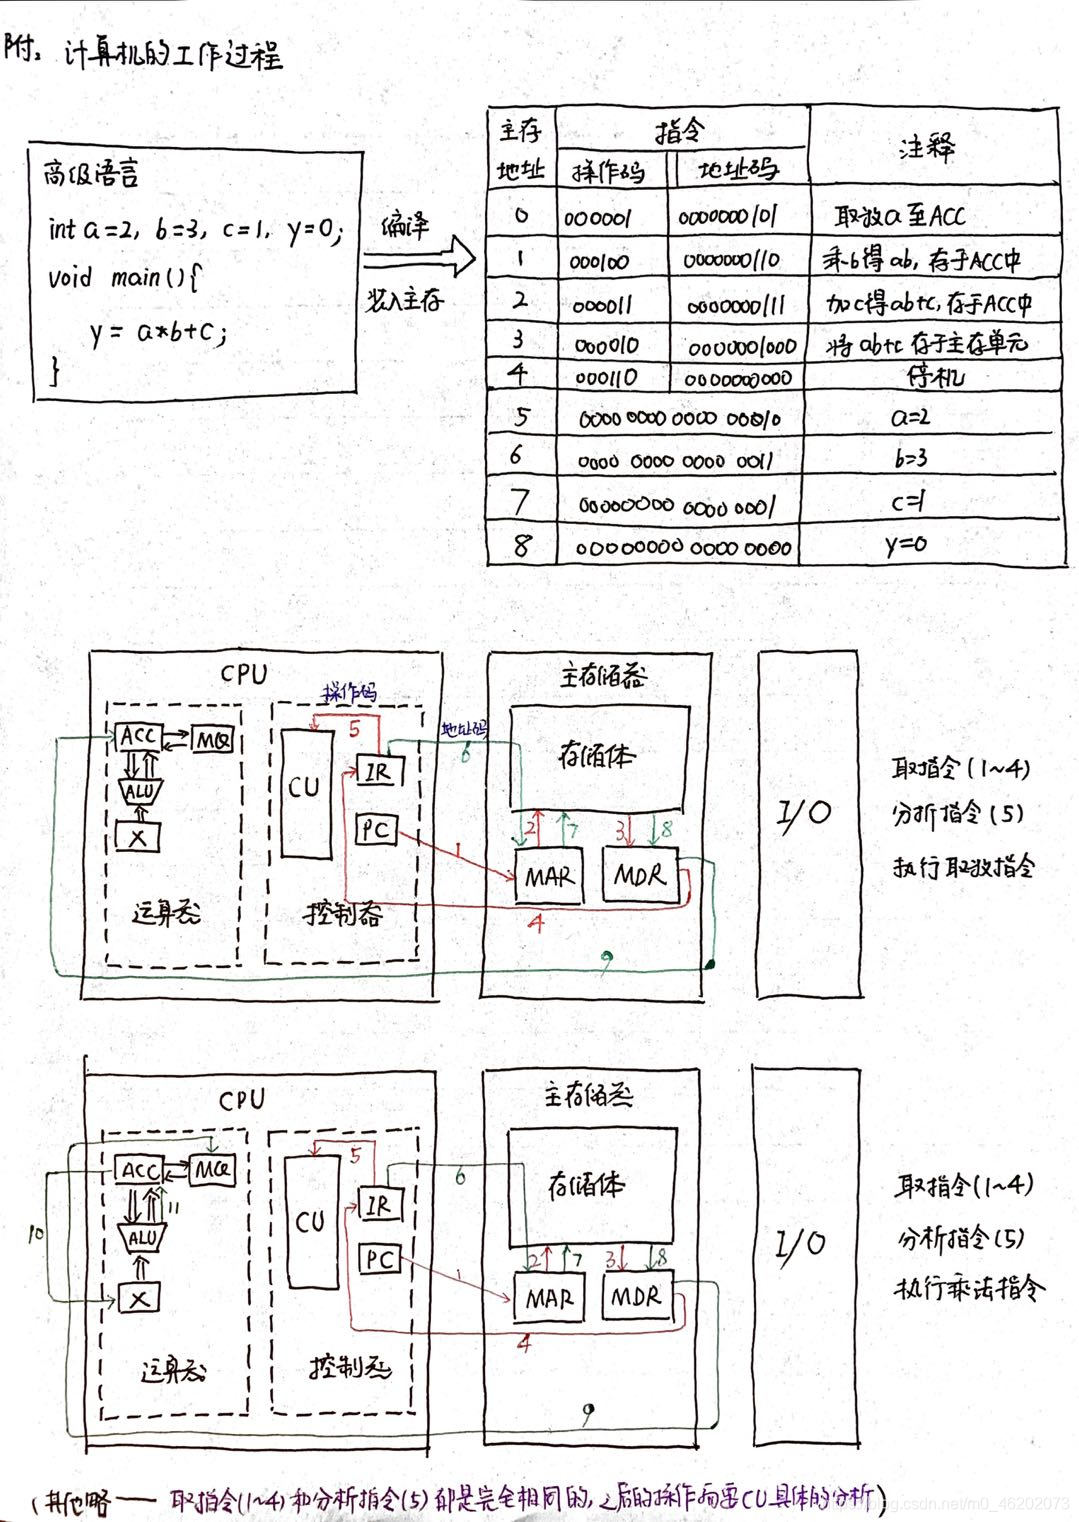 附: 计算机的工作过程
高级语言
int a=2, b=3, c=1, y=0;
void main(){
y = a*b+c;
}
编译
装入主存
主存地址 指令 注释
操作码 地址码
0 000001 0000000101 取数a至ACC
1 000100 0000000110 乘b得ab,存于ACC中
2 000011 0000000111 加c得ab+c,存于ACC中
3 000010 0000001000 将ab+c存于主存单元
4 000110 0000000000 停机
5 0000 0000 0000 00010 a=2
6 0000 0000 0000 0011 b=3
7 00000000 0000 0001 c=1
8 00000000 0000 0000 y=0
CPU
主存储器
操作码
地址码
ACC
MQ
ALU
X
运算器
CU
IR
PC
控制器
存储体
MAR
MDR
I/O
1
2
3
4
5
6
7
8
9
取指令(1~4)
分析指令(5)
执行取数指令
CPU
主存储器
ACC
MQ
ALU
X
运算器
CU
IR
PC
控制器
存储体
MAR
MDR
I/O
1
2
3
4
5
6
7
8
9
10
11
取指令(1~4)
分析指令(5)
执行乘法指令
(其他略—— 取指令(1~4)和分析指令(5)都是完全相同的,之后的操作需要CU具体的分析)
blog.csdn.net/m0_46202073